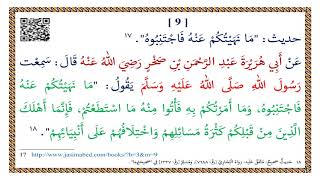 [ 9 ]
حديث : "مَا نَهَيْتُكُمْ عَنْهُ فَاجْتَنِبُوهُ". ١٧
عَنْ أَبِي هُرَيْرَةَ عَبْدِ الرَّحْمَنِ بْنِ صَخْرٍ رَضِيَ اللَّهُ عَنْهُ قَالَ: سَمِعْت
رَسُولَ اللَّهِ صَلَّى اللَّهُ عَلَيْهِ وَسَلَّمَ يَقُولُ: "مَا نَهَيْتُكُمْ عَنْهُ
فَاجْتَنِبُوهُ، وَمَا أَمَرْتُكُمْ بِهِ فَأْتُوا مِنْهُ مَا اسْتَطَعْتُمْ، فَإِنَّمَا أَهْلَكَ
الَّذِينَ مِنْ قَبْلِكُمْ كَثْرَةُ مَسَائِلِهِمْ وَاخْتِلَافُهُمْ عَلَى أَنْبِيَائِهِمْ". ١٨
17 http://www.jasimabed.com/books/?b=3&m=9
١٨ حديث صحيح: متفق عليه، رواه البخاري